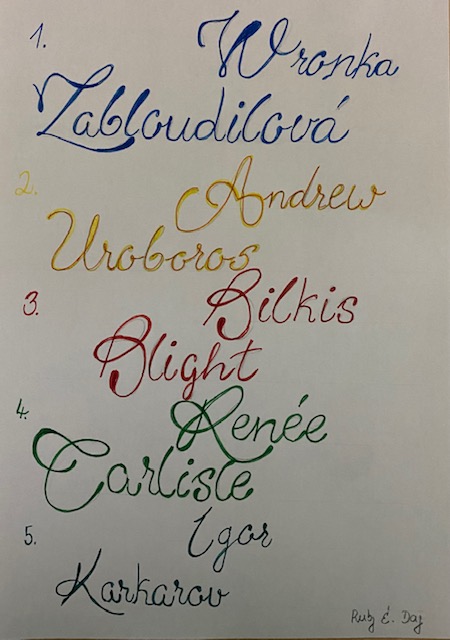 1. Wronka
Zabloudilová
2. Andrew
Uroboros
3. Bilkis
Blight
4. Renée
Carlisle
5. Igor
Karkarov
É. Daj